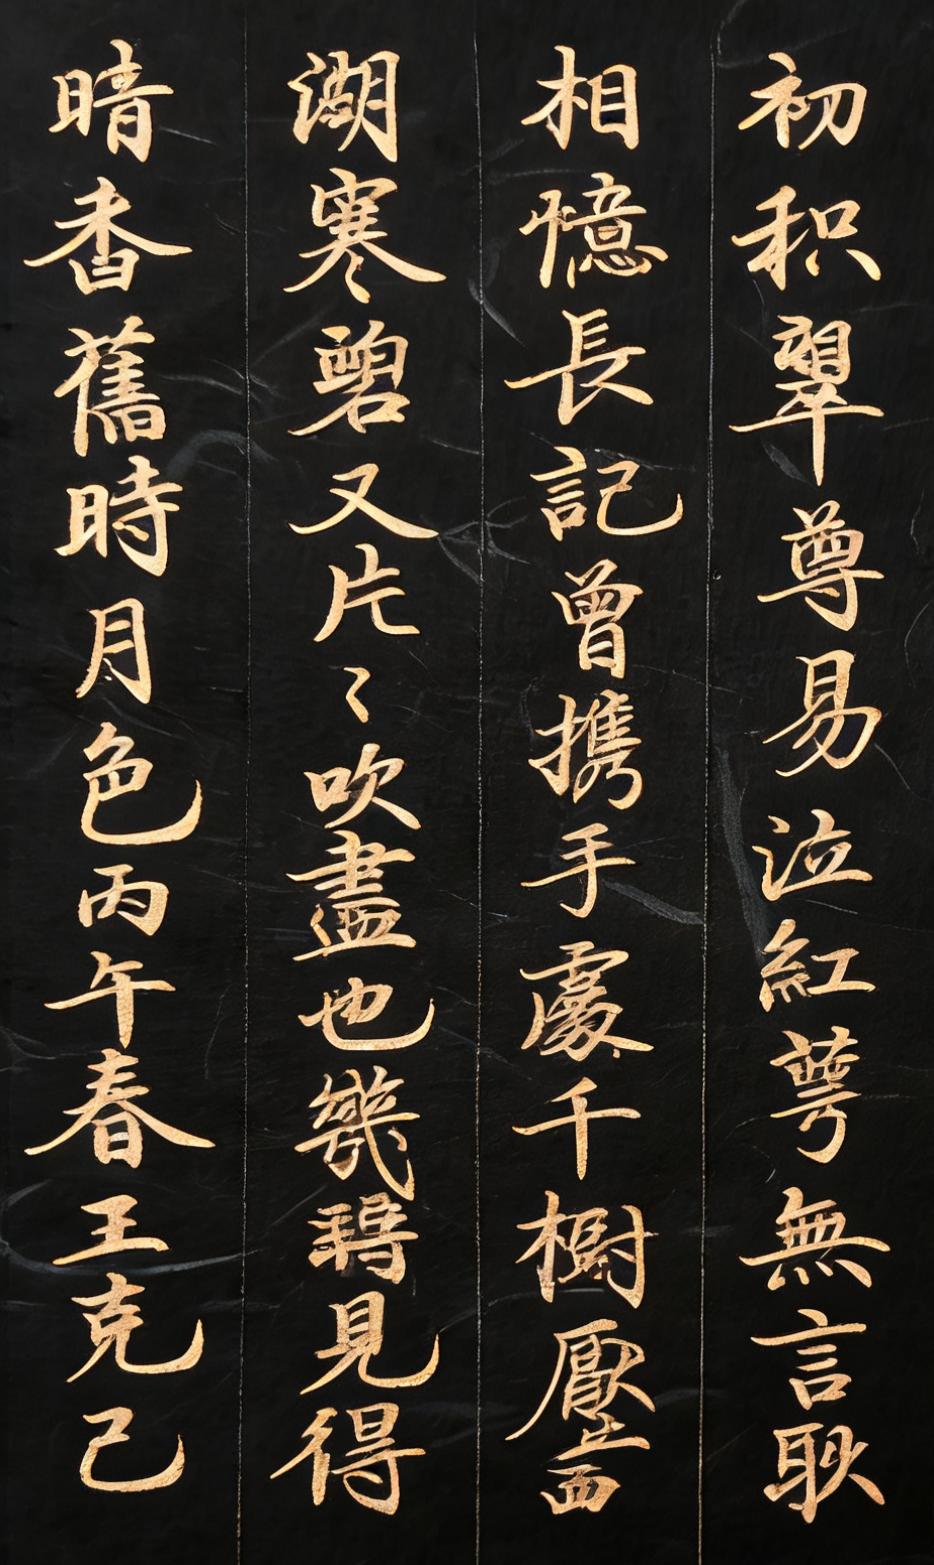 初积翠尊易泣紅萼無言耿
相憶長記曾携手處千樹壓西
湖寒碧又片〻吹盡也幾見得
暗香舊時月色丙午春王克己